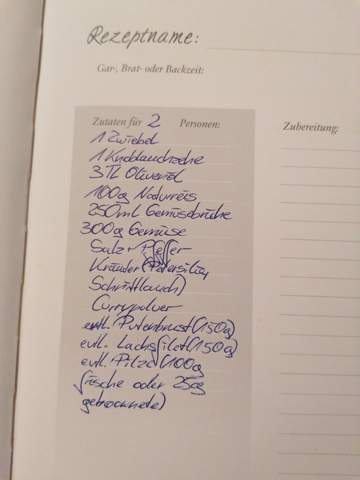 Rezeptname:
Gar-, Brat- oder Backzeit:
Zutaten für 2 Personen:
Zubereitung:
1 Zwiebel
1 Knoblauchzehe
3 TL Olivenöl
100g Naturreis
250ml Gemüsebrühe
300g Gemüse
Salz + Pfeffer
Kräuter (Petersilie,
Schnittlauch)
Currypulver
evtl. Putenbrust (150g)
evtl. Lachsfilet (150g)
evtl. Pilze (100g
frische oder 25g
getrocknete)